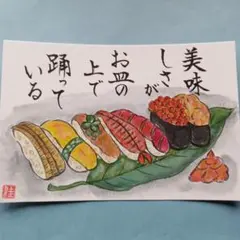 美味
しさが
お皿の
上で
踊って
いる